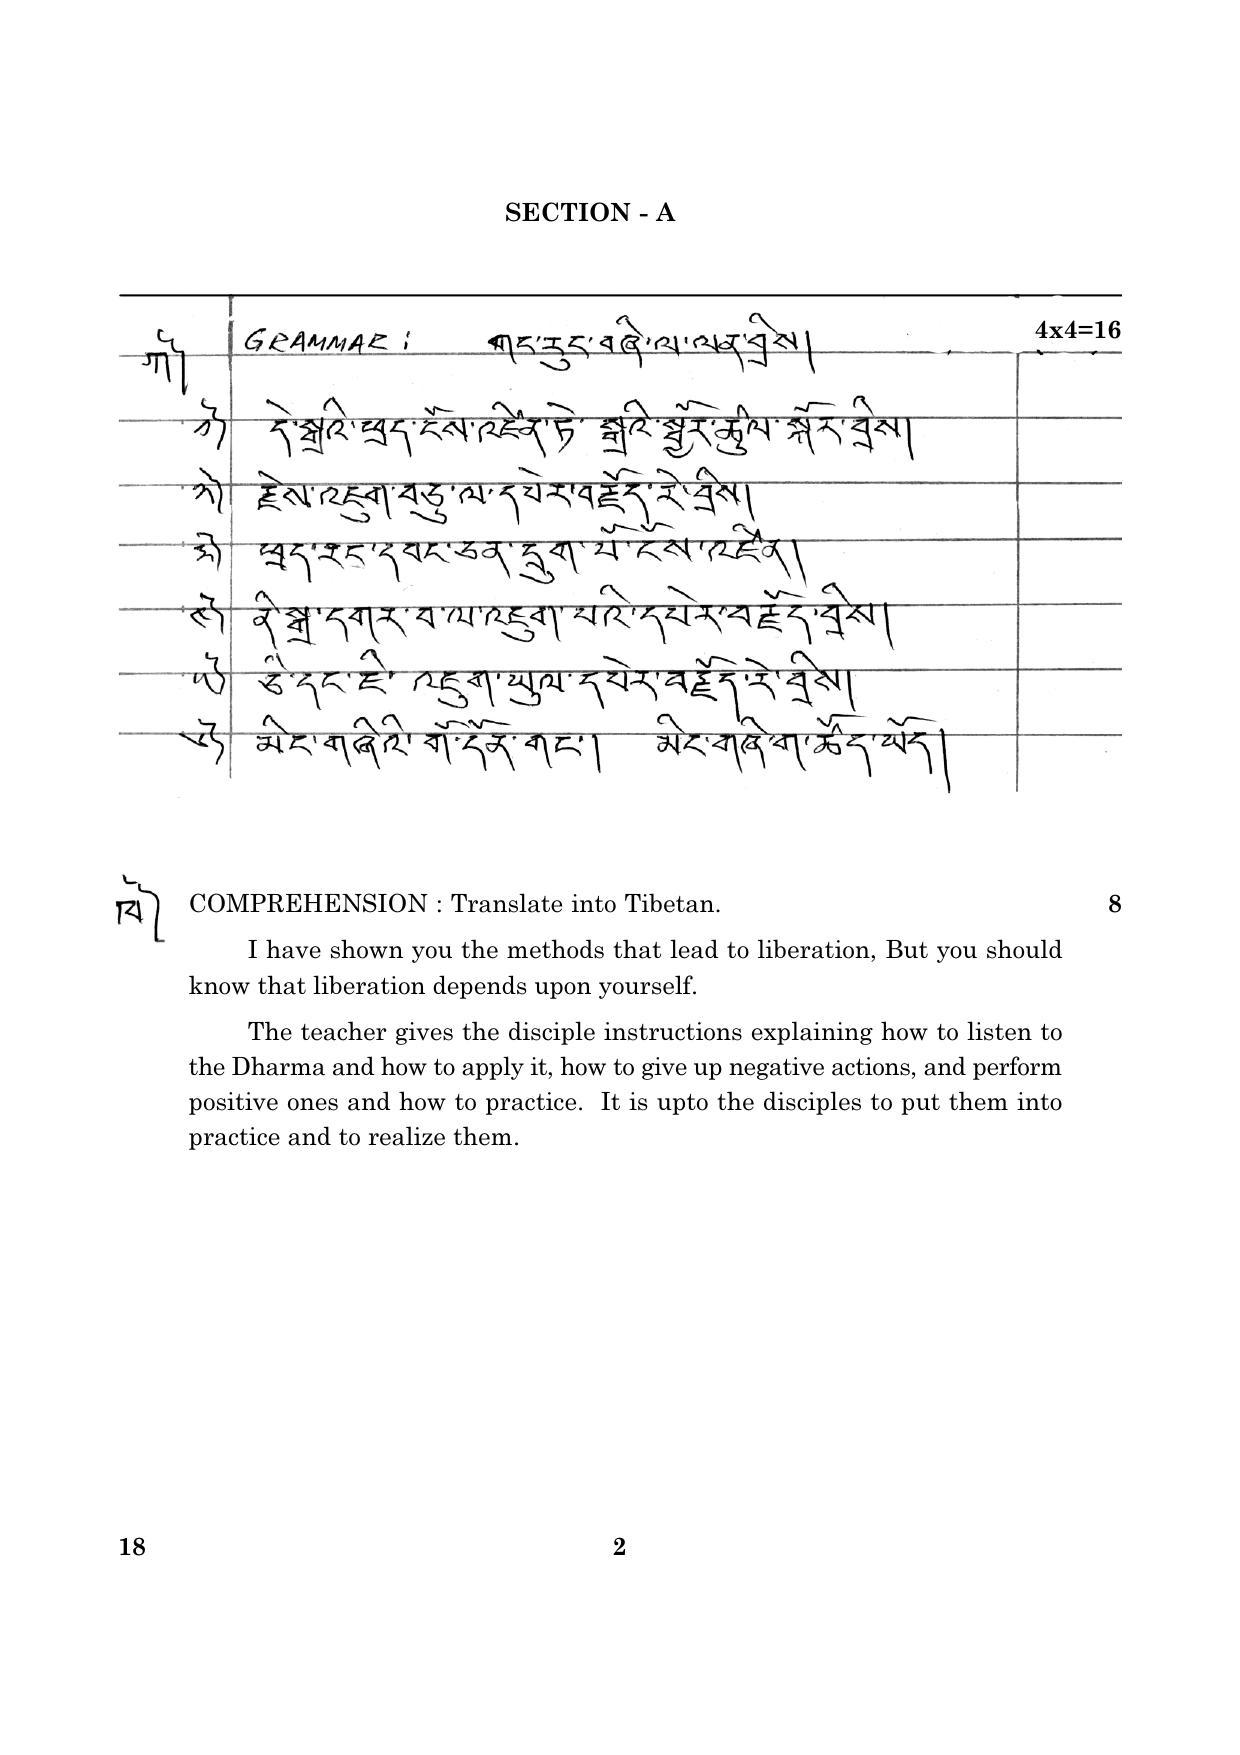 SECTION - A
ཀ༽ GRAMMAR : གང་རུང་བཞི་ལ་ལན་བྲིས། 4x4=16
༡༽ དེ་སྒྲའི་ཕྲད་ངོས་འཛིན་ཏེ་ སྒྲའི་སྦྱོར་ཚུལ་སྐོར་བྲིས།
༢༽ རྗེས་འཇུག་བཅུ་ལ་དཔེར་བརྗོད་རེ་བྲིས།
༣༽ ཕྲད་རང་དབང་ཅན་དྲུག་པོ་ངོས་འཛིན།
༤༽ ནི་སྒྲ་དགར་བ་ལ་འཇུག་པའི་དཔེར་བརྗོད་བྲིས།
༥༽ ཅི་དང་ཇི་ འཇུག་ཡུལ་དཔེར་བརྗོད་རེ་བྲིས།
༦༽ མིང་གཞིའི་གོ་དོན་གང་། མིང་གཞི་ག་ཚོད་ཡོད།
ཁ༽ COMPREHENSION : Translate into Tibetan. 8
I have shown you the methods that lead to liberation, But you should
know that liberation depends upon yourself.
The teacher gives the disciple instructions explaining how to listen to
the Dharma and how to apply it, how to give up negative actions, and perform
positive ones and how to practice. It is upto the disciples to put them into
practice and to realize them.
18 2